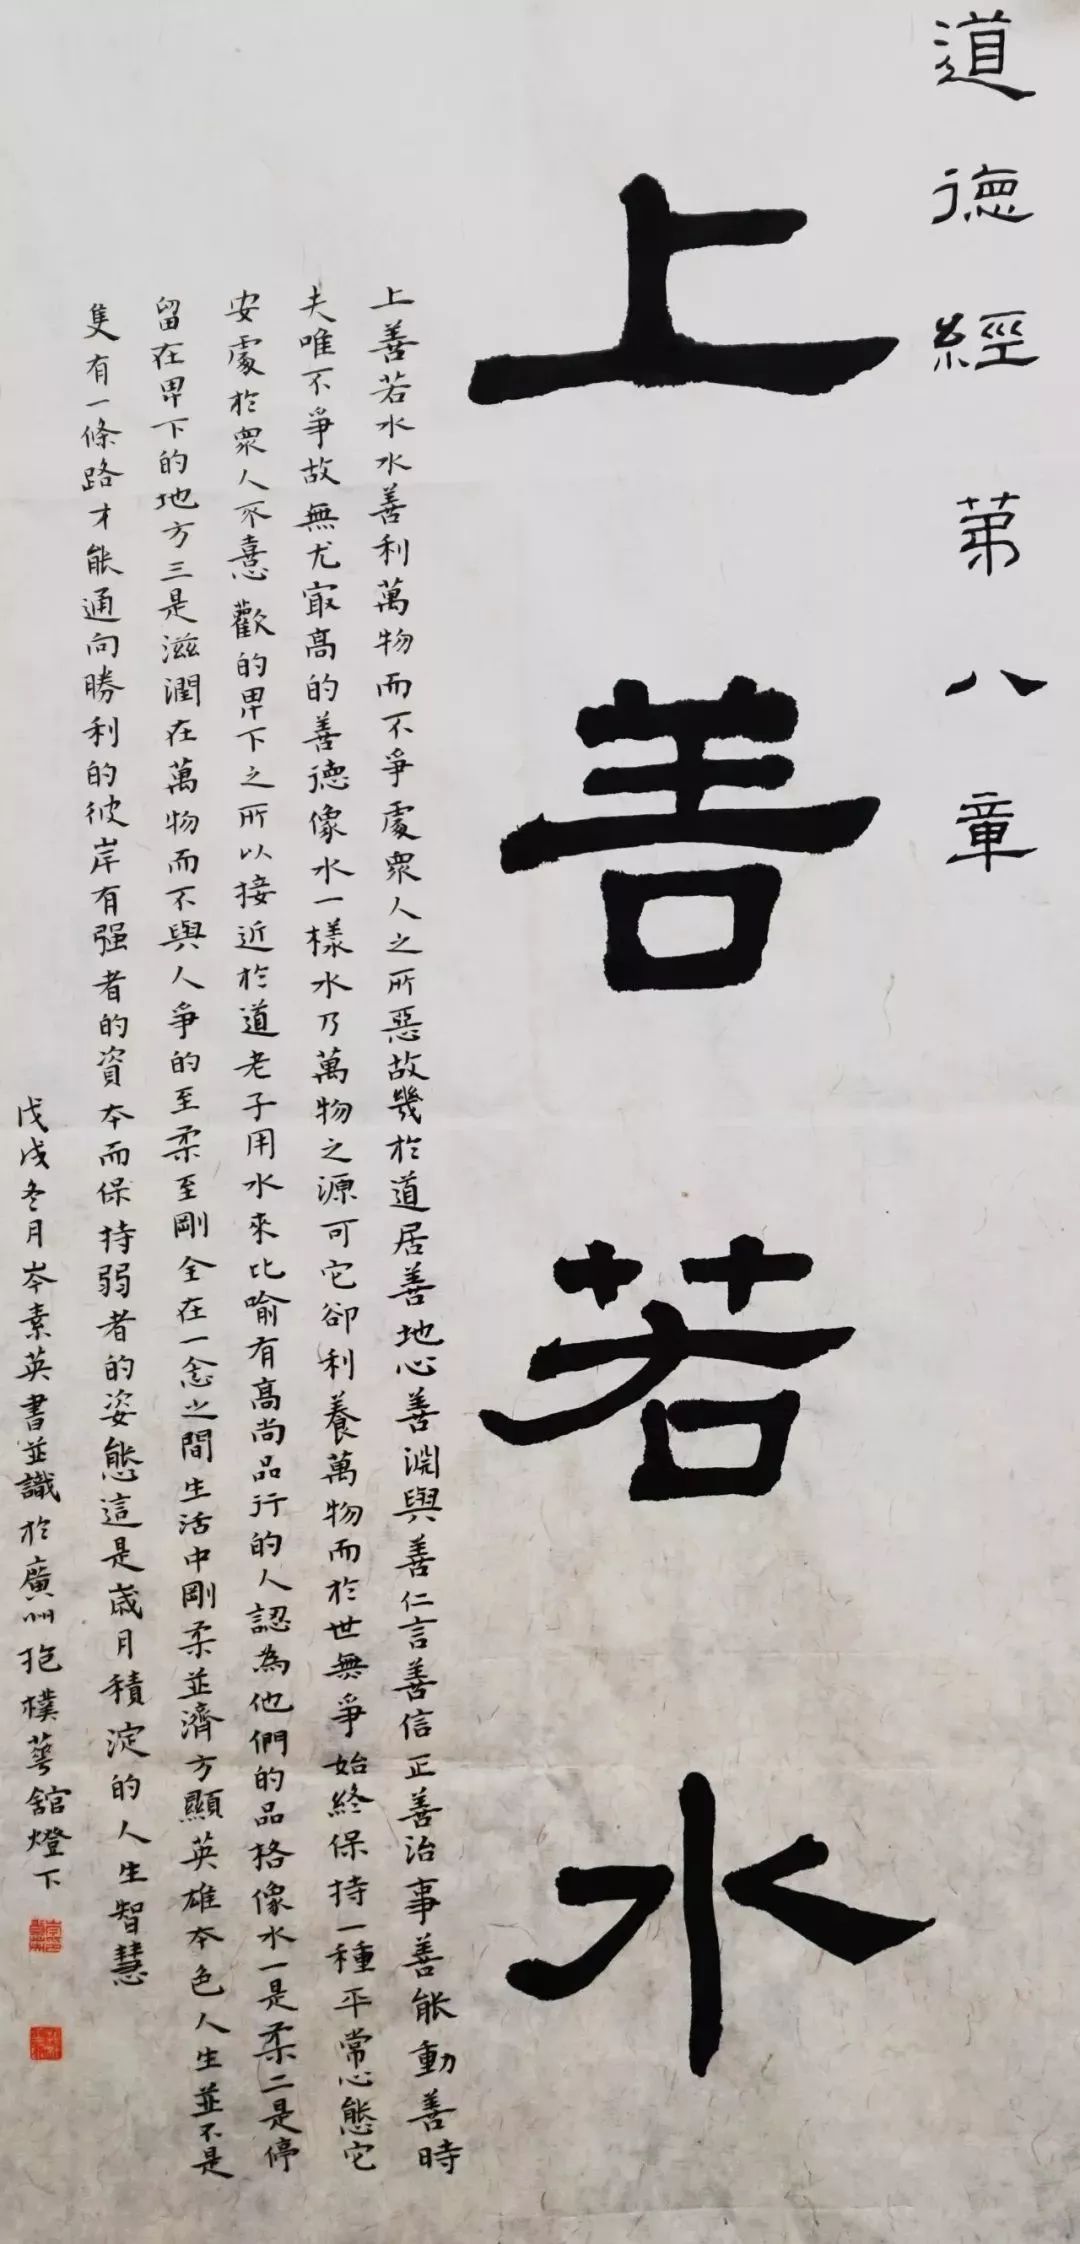 道德經第八章
上善若水
上善若水水善利萬物而不爭處衆人之所惡故幾於道居善地心善淵與善仁言善信正善治事善能動善時
夫唯不爭故無尤寂高的善德像水一樣水乃萬物之源可它卻利養萬物而於世無爭始終保持一種平常心態它
安處於衆人不憙歡的卑下之所以接近於道老子用水來比喻有高尚品行的人認為他們的品格像水一是柔二是停
留在卑下的地方三是滋潤在萬物而不與人爭的至柔至剛全在一念之間生活中剛柔並濟方顯英雄本色人生並不是
隻有一條路才能通向勝利的彼岸有强者的資本而保持弱者的姿態這是歲月積淀的人生智慧
戊戌冬月岑素英書並識於廣州抱樸藝舘燈下